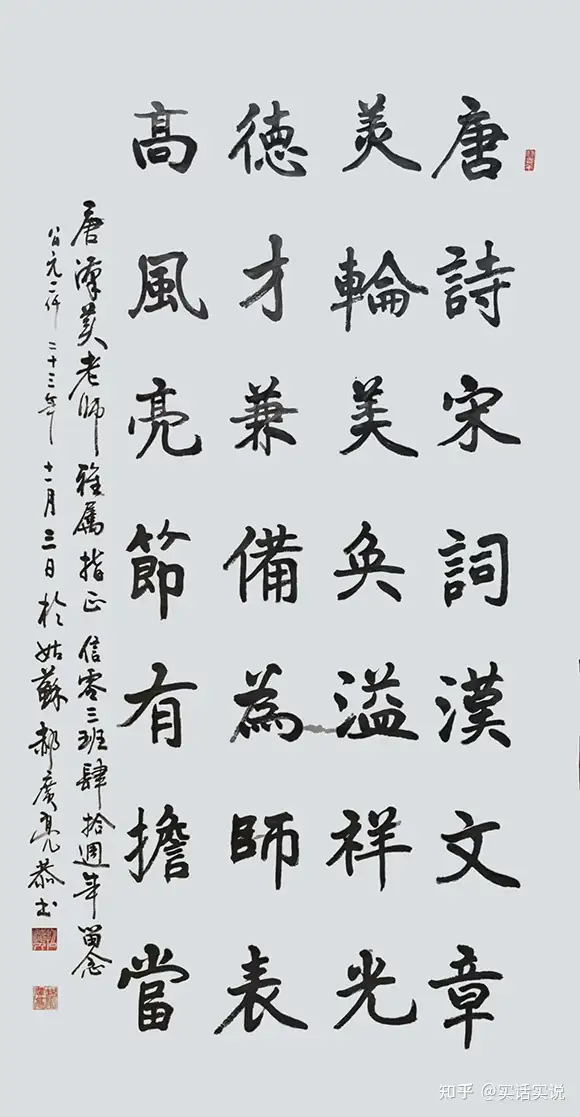 唐詩宋詞漢文章
美輪美奐溢祥光
德才兼備為師表
高風亮節有擔當
唐漢美老師雅屬指正 信零三班肆拾週年留念
公元二仟二十三年十一月三日於姑蘇郝廣亮恭书
知乎 @实话实说